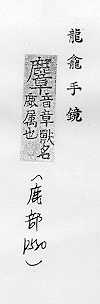 龍龕手鏡
麞音章獸名
鹿属也
(鹿部 P520)